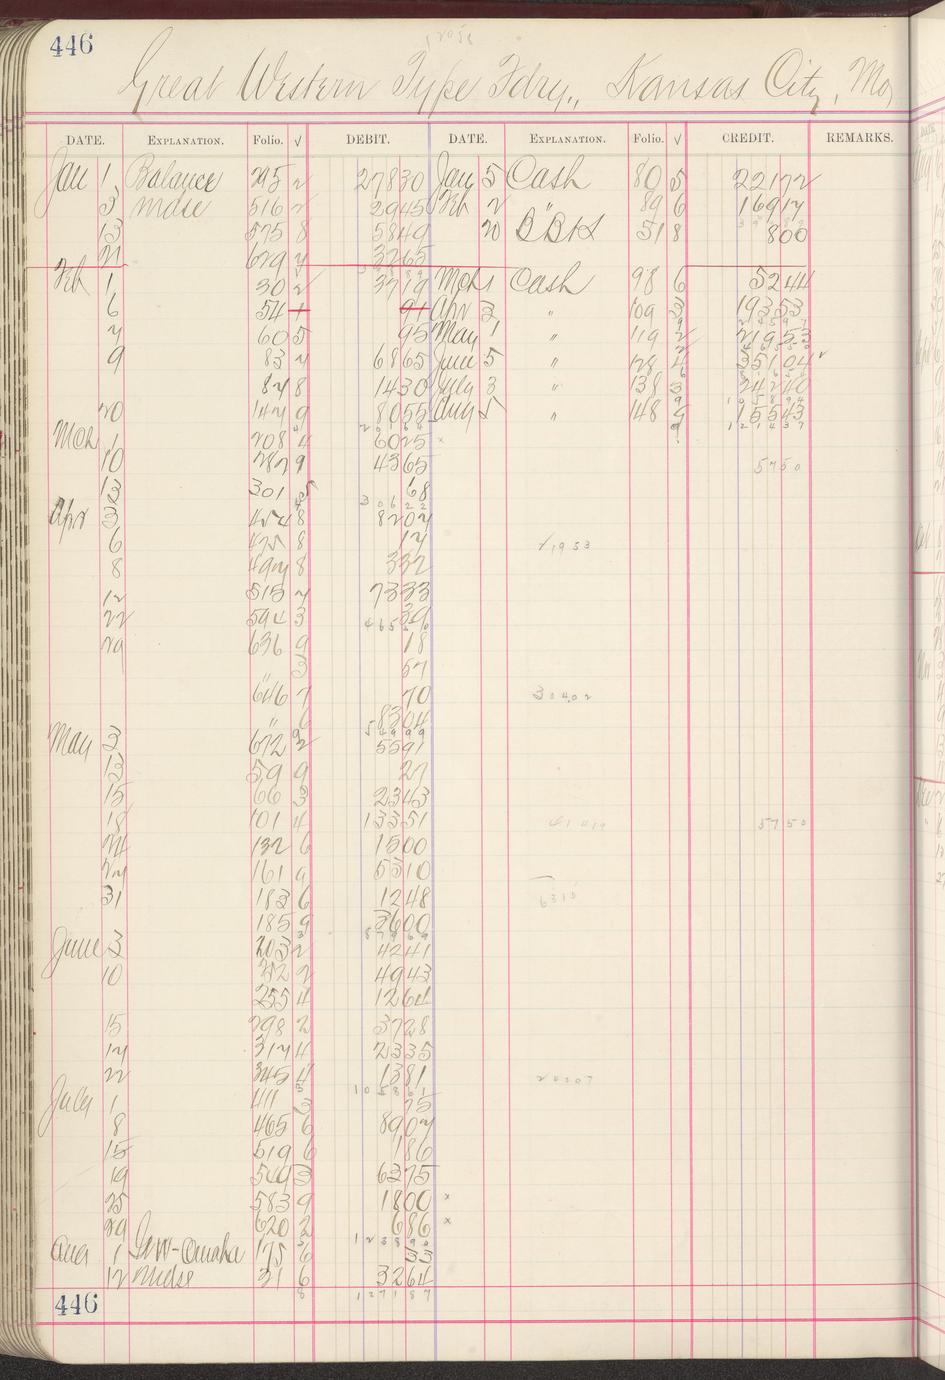 446
Great Western Type Fdry., Kansas City, Mo.
DATE. EXPLANATION. Folio. √ DEBIT. DATE. EXPLANATION. Folio. √ CREDIT. REMARKS.
Jan 1 Balance 245 2 27830 Jan 5 Cash 80 5 22172
3 Mdse 516 2 2945 Feb 2 " 89 6 16917
13 575 8 5849 20 B"B15 518 800
21 629 7 3265
Feb 1 30 2 3719 Mch 1 Cash 98 6 5244
6 54 1 91 Apr 3 " 109 3 19353
7 60 5 95 May 1 " 119 2 21953
9 83 7 6865 June 5 " 128 4 35104
87 8 1430 July 3 " 138 3 24240
20 147 9 8055 Aug 5 " 148 5 15543
Mch 1 208 4 6025 x
10 287 9 4365 5750
13 301 5 68
30622
Apr 3 454 8 8207
6 475 8 17 1953
8 497 8 332
12 515 7 7333
22 594 3 39
29 636 9 18
" 3 57
646 7 70 30402
" 6 8304
May 3 672 2 5591
13 59 9 27
15 66 3 2343
18 101 4 13351 5750
24 132 6 1500
27 161 9 5510
31 183 6 1248 6313
185 9 3600
June 3 203 2 4241
10 232 2 4943
255 4 1264
15 298 2 3728
17 317 4 2335
22 345 4 1381 20207
105861
July 1 411 3 75
8 465 6 8907
15 519 6 186
19 549 3 6275
25 583 9 1800 x
29 620 2 686 x
123890
Aug 1 Inv-Omaha 175 6 33
12 Mdse 31 6 3264
446 8 127187